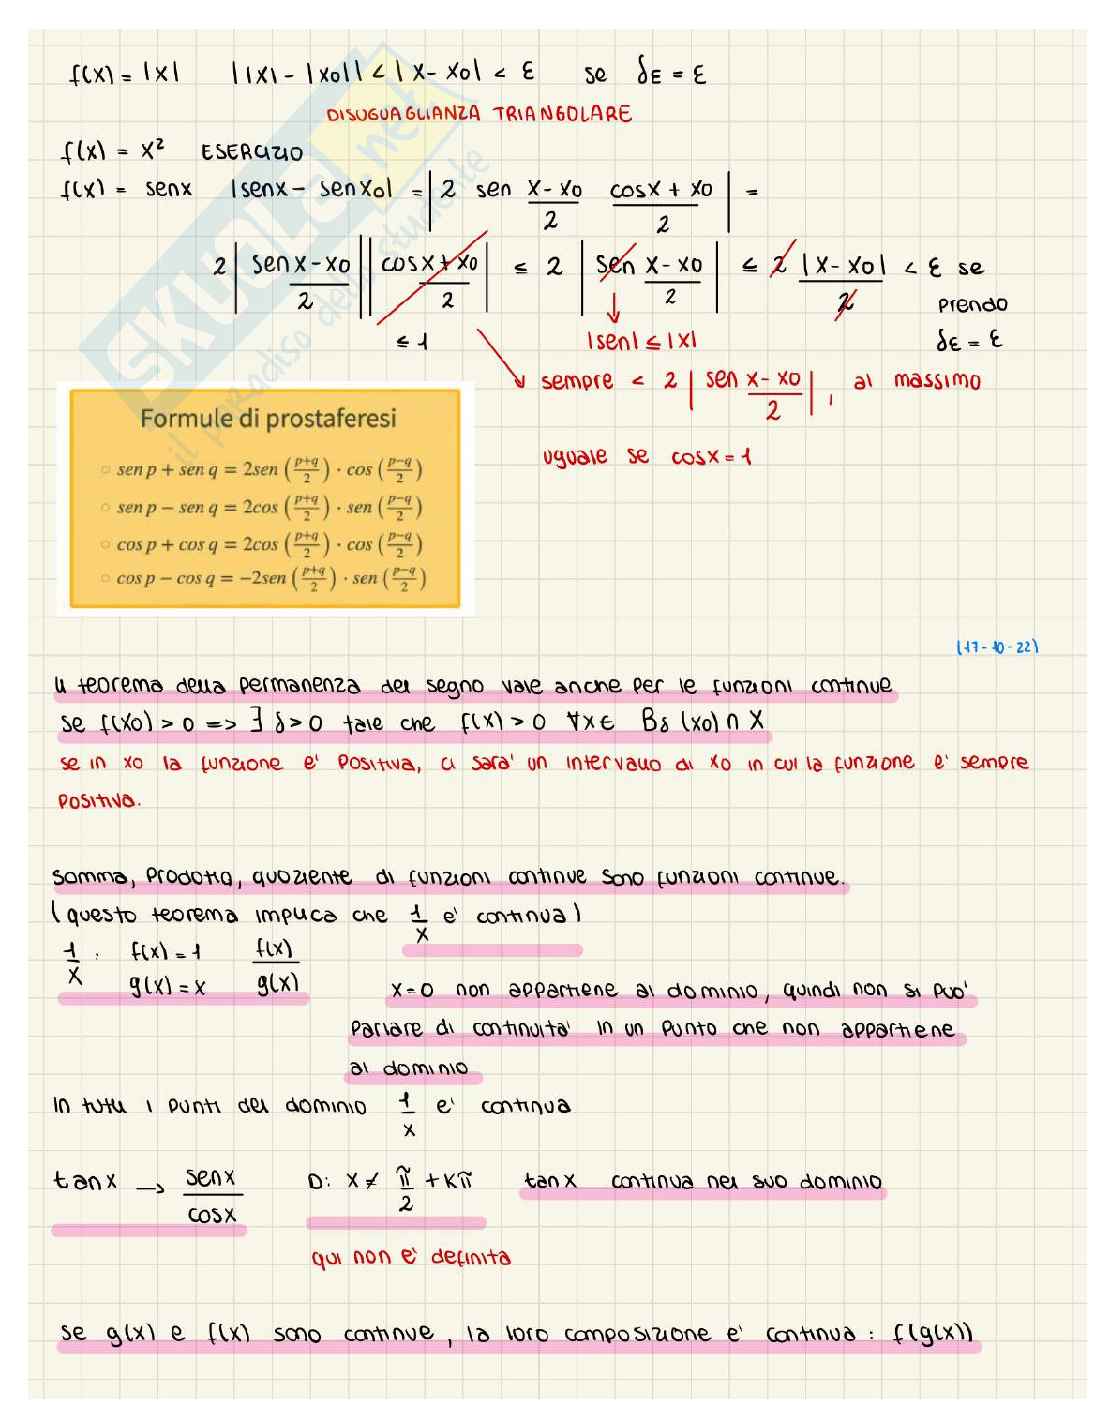 f(x) = |x| ||x| - |x0|| < |x - x0| < ε se δε = ε
DISUGUAGLIANZA TRIANGOLARE
f(x) = x² ESERCIZIO
f(x) = senx |senx - senx0| = |2 sen (x - x0)/2 (cosx + x0)/2| =
2 |(sen x - x0)/2| |(cosx + x0)/2| ≤ 2 |sen (x - x0)/2| ≤ 2 |x - x0|/2 < ε se
prendo
≤ 1 |sen| ≤ |x| δε = ε
sempre < 2 |sen (x - x0)/2|, al massimo
uguale se cosx = 1
Formule di prostaferesi
sen p + sen q = 2sen ((p+q)/2) · cos ((p−q)/2)
sen p − sen q = 2cos ((p+q)/2) · sen ((p−q)/2)
cos p + cos q = 2cos ((p+q)/2) · cos ((p−q)/2)
cos p − cos q = −2sen ((p+q)/2) · sen ((p−q)/2)
(17-10-22)
Il teorema della permanenza del segno vale anche per le funzioni continue
Se f(x0) > 0 => ∃ δ > 0 tale che f(x) > 0 ∀x ∈ Bδ (x0) ∩ X
se in x0 la funzione e' positiva, ci sara' un intervallo di x0 in cui la funzione e' sempre
positiva.
Somma, prodotto, quoziente di funzioni continue sono funzioni continue.
(questo teorema implica che 1/x e' continua)
1/x : f(x) = 1 f(x)/g(x)
g(x) = x
x=0 non appartiene al dominio, quindi non si puo'
parlare di continuita' in un punto che non appartiene
al dominio
In tutti i punti del dominio 1/x e' continua
tanx → senx/cosx D: x ≠ π/2 + Kπ tanx continua nel suo dominio
qui non e' definita
Se g(x) e f(x) sono continue, la loro composizione e' continua : f(g(x))
SKUOLA.net
il paradiso dello studente